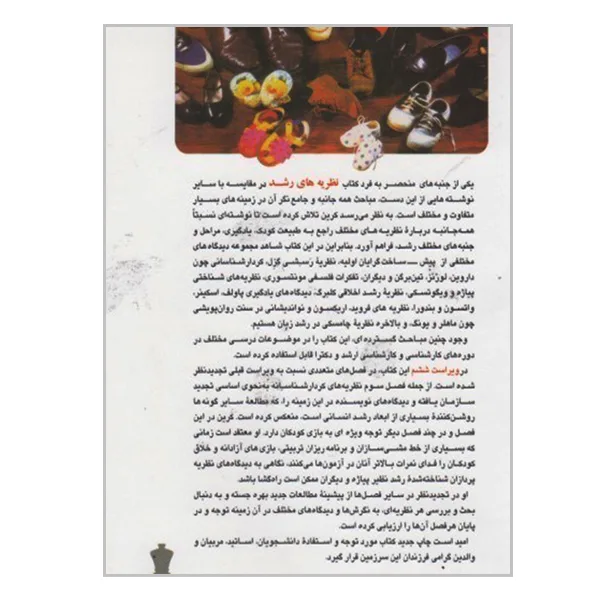 یکی از جنبه‌های منحصر به فرد کتاب نظریه های رشد در مقایسه با سایر
نوشته هایی از این دست، مباحث همه جانبه و جامع‌نگر آن در زمینه های بسیار
متفاوت و مختلف است. به نظر می‌رسد کرین تلاش کرده است تا نوشته‌ای نسبتاً
همه‌جانبه دربارهٔ نظریه‌های مختلف راجع به طبیعت کودک، یادگیری، مراحل و
جنبه‌های مختلف رشد، فراهم آورد. بنابراین در این کتاب شاهد مجموعه دیدگاه های
مختلفی از پیش ـ ساخت‌گرایان اولیه، نظریهٔ رَسِشی گزل، کردارشناسانی چون
داروین، لورنز، تین‌برگن و دیگران، تفکرات فلسفی مونتسوری، نظریه‌های شناختی
پیاژه و ویگوتسکی، نظریهٔ رشد اخلاقی کلبرگ، دیدگاه‌های یادگیری پاولف، اسکینر،
واتسون و بندورا، نظریه های فروید، اریکسون و نواندیشانی در سنت روان‌پویشی
چون ماهلر و یونگ، و بالاخره نظریهٔ چامسکی در رشد زبان هستیم.
وجود چنین مباحث گسترده‌ای، این کتاب را در موضوعات درسی مختلف در
دوره‌های کارشناسی و کارشناسی ارشد و دکترا قابل استفاده کرده است.
در ویراست ششم این کتاب، در فصل‌های متعددی نسبت به ویراست قبلی تجدیدنظر
شده است. از جمله فصل سوم نظریه‌های کردارشناسانه به‌نحوی اساسی تجدید
سازمان یافته و دیدگاه‌های نویسنده در این زمینه را، که مطالعهٔ سایر گونه ها
روشن‌کنندهٔ بسیاری از ابعاد رشد انسانی است، منعکس کرده است. کرین در این
فصل و در چند فصل دیگر توجه ویژه ای به بازی کودکان دارد. او معتقد است زمانی
که بسیاری از خط مشی‌سازان و برنامه ریزان تربیتی، بازی های آزادانه و خلاق
کودکان را فدای نمرات بالاتر آنان در آزمون‌ها می‌کنند، نگاهی به دیدگاه‌های نظریه
پردازان شناخته‌شدهٔ رشد نظیر پیاژه و دیگران ممکن است راه‌گشا باشد.
او در تجدیدنظر در سایر فصل‌ها از پیشینهٔ مطالعات جدید بهره جسته و به دنبال
بحث و بررسی هر نظریه‌ای، به نگرش‌ها و دیدگاه‌های مختلف در آن زمینه توجه و در
پایان هرفصل آن‌ها را ارزیابی کرده است.
امید است چاپ جدید کتاب مورد توجه و استفادهٔ دانشجویان، اساتید، مربیان و
والدین گرامی فرزندان این سرزمین قرار گیرد.